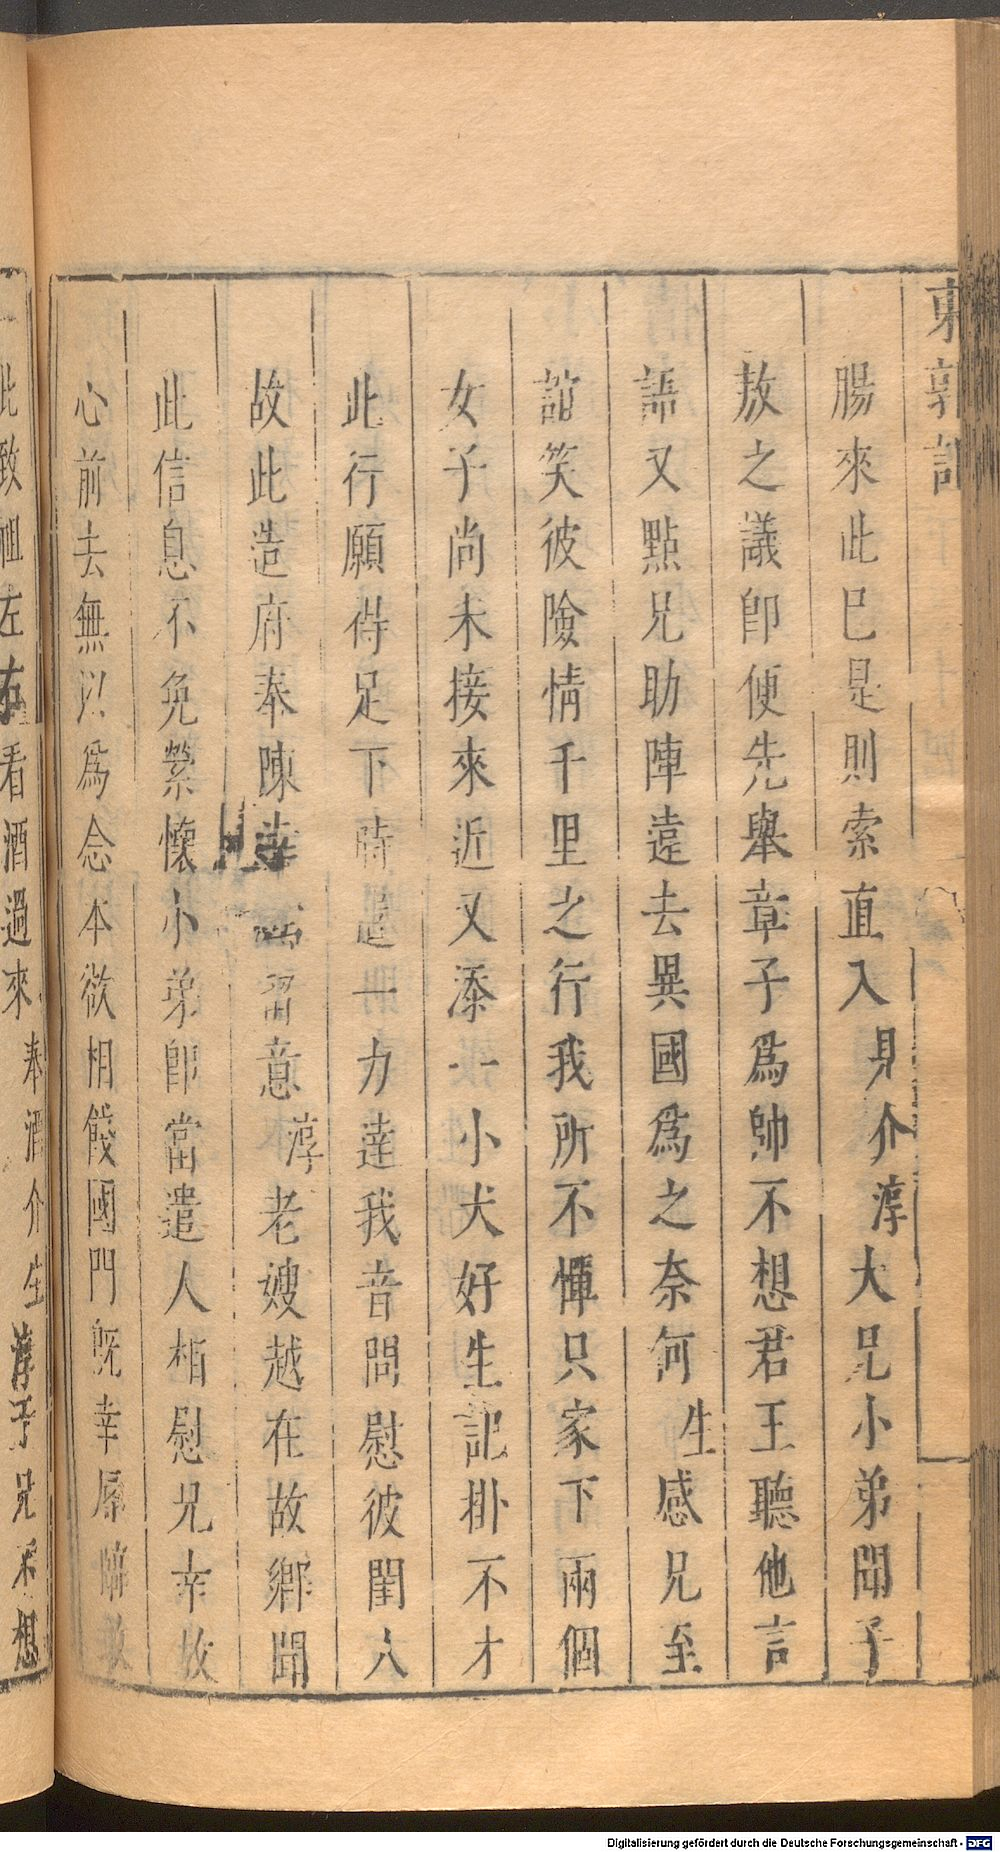 東郭記
腸來此巳是則索直入見介淳大兄小弟聞子
敖之議卽便先舉章子爲帥不想君王聽他言
語又點兄助陣遠去異國爲之奈何生感兄至
誼笑彼險情千里之行我所不憚只家下兩個
女子尚未接來近又添一小犬好生記掛不才
此行願得足下時一力達我音問慰彼閨人
故此造府奉陳幸留意淳老嫂越在故鄉聞
此信息不免縈懷小弟卽當遣人相慰兄幸放
心前去無以爲念本欲相餞國門旣幸辱敢
此致祖左右看酒過來奉酒介生淳于兄不想
Digitalisierung gefördert durch die Deutsche Forschungsgemeinschaft - DFG